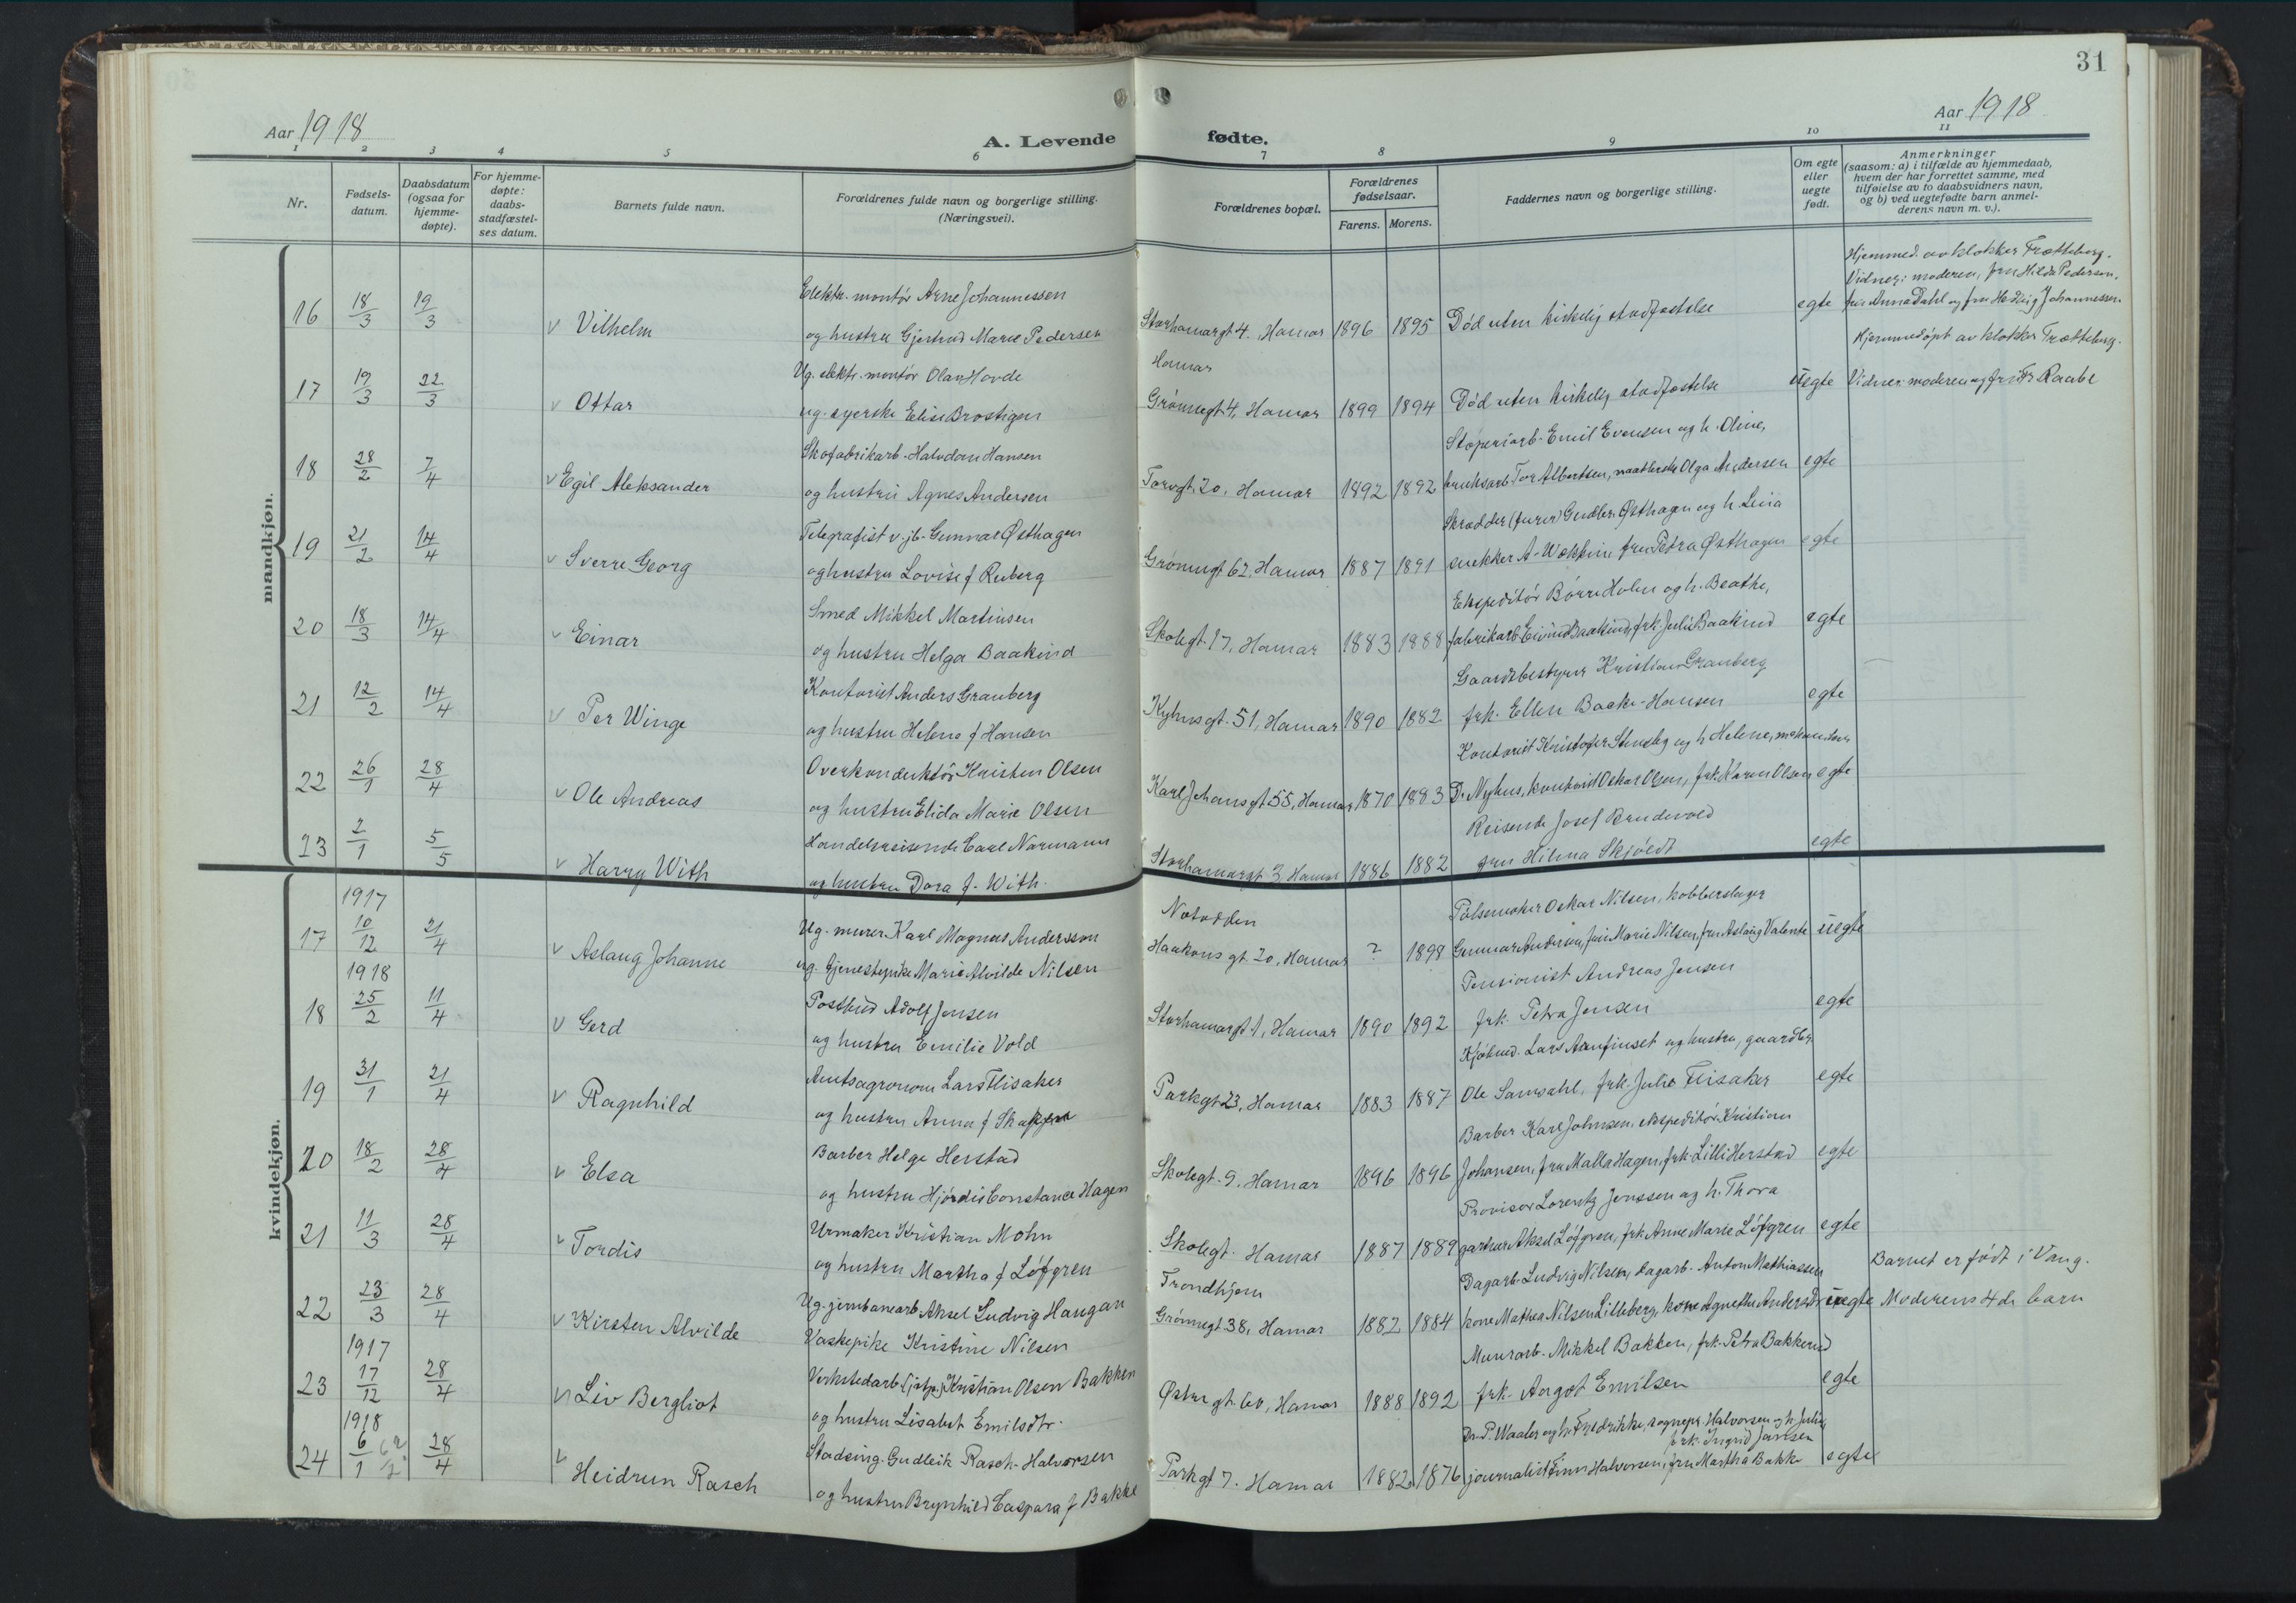 31
Aar 1918
A. Levende fødte.
Aar 1918
1 2 3 4 5 6 7 8 9 10 11
Nr.
Fødsels-
datum.
Daabsdatum
(ogsaa for
hjemme-
døpte).
For hjemme-
døpte:
daabs-
stadfæstel-
ses datum.
Barnets fulde navn.
Forældrenes fulde navn og borgerlige stilling.
(Næringsvei).
Forældrenes bopæl.
Forældrenes
fødselsaar.
Farens. Morens.
Faddernes navn og borgerlige stilling.
Om egte
eller
uegte
født.
Anmerkninger
(saasom: a) i tilfælde av hjemmedaab,
hvem der har forrettet samme, med
tilføielse av to daabsvidners navn,
og b) ved uegtefødte barn anmel-
derens navn m. v.).
mandkjøn.
16 18/3 19/3 v Vilhelm
Elektr. montør Arne Johannessen
og hustru Gjertrud Marie Pedersen
Storhamargt 4, Hamar 1896 1895 Død uten kirkelig stadfæstelse egte
Hjemmed. av klokker Frætteberg.
Vidner: moderen, fru Hilda Pedersen,
fru Anna Dahl og fru Hedvig Johannessen.
17 19/3 22/3 v Ottar
Ug. elektr. montør Olav Hovde
ug. syerske Elise Brostigen
Hamar
Grønnegt 4, Hamar 1899 1894 Død uten kirkelig stadfæstelse uegte
Hjemmedøpt av klokker Frætteberg.
Vidner: moderen og fru Fr. Raabe
18 28/2 7/4 v Egil Aleksander
Skofabrikarb. Halvdan Hansen
og hustru Agnes Andersen
Torvgt. 20, Hamar 1892 1892
Støperiarb. Emil Evensen og h. Oline,
bruksarb. Tor Albertsen, Olga Andersen egte
19 21/2 14/4 v Sverre Georg
Telegrafist v. jb. Gunnar Østhagen
og hustru Lovise f Reberg
Grønnegt 62, Hamar 1887 1891
Skrædder Gudbr. Østhagen og h. Lina
snekker A. fru Petra Østhagen egte
20 18/3 14/4 v Einar
Smed Mikkel Martinsen
og hustru Helga Baakind
Skolegt. 17, Hamar 1883 1888
Ekspeditør Børre Holm og h. Beathe,
fabrikarb. Eivind Baakind, frk. Julie Baakind egte
21 12/2 14/4 v Per Winge
Kontorist Anders Granberg
og hustru Helene f Hansen
gt. 51, Hamar 1890 1882
Gaardsbestyrer Kristian Granberg
frk. Ellen Backe-Hansen egte
22 26/1 28/4 v Ole Andreas
Overkonduktør Kristen Olsen
og hustru Elida Marie Olsen
Karl Johansgt 55, Hamar 1870 1883
Kontorist Kristofer og h Helene,
D. Nyhus, kontorist Oskar Olsen, frk. Karen Olsen egte
23 2/1 5/5 v Harry With
Handelsreisende Carl Normann
og hustru Dora f. With.
Storhamargt. 3, Hamar 1886 1882
Reisende Josef Brudevold
fru Hilma Skjøldt egte
kvindekjøn.
1917
17 10/12 21/4 v Aslaug Johanne
Ug. murer Karl Magnus Andersson
ug. tjenestepike Marie Alvilde Nilsen
Notodden
Haakons gt. 20, Hamar ? 1898
Pølsemaker Oskar Nilsen, kobberslager
Gunnar Andersen, fru Marie Nilsen, fru Aslaug Valente uegte
1918
18 25/2 11/4 v Gerd
Postbud Adolf Jensen
og hustru Emilie Vold
Storhamargt 1, Hamar 1890 1892
Pensionist Andreas Jensen
frk. Petra Jensen egte
19 31/1 21/4 v Ragnhild
Amtsagronom Lars Flisaker
og hustru Anna f
Parkgt 23, Hamar 1883 1887
Kjøbmd. Lars og hustru, gaardbr.
Ole Samsahl, frk. Julie Flisaker egte
20 18/2 28/4 v Elsa
Barber Helge Herstad
og hustru Hjørdis Constance Hagen
Skolegt. 9, Hamar 1896 1896
Barber Karl Johnsen, ekspeditør Kristian
Johansen, fru Malla Hagen, frk. Lilli Herstad egte
21 11/3 28/4 v Tordis
Urmaker Kristian Mohn
og hustru Martha f Löfgren
Skolegt. Hamar 1887 1889
Provisor Lorentz Jenssen og h. Thora
gartner Aksel Löfgren, frk. Anne Marie Löfgren egte
22 23/3 28/4 v Kirsten Alvilde
Ug. jernbanearb. Aksel Ludvig Haugan
Vaskepike Kristine Nilsen
Trondhjem
Grønnegt 38, Hamar 1882 1884
Dagarb. Ludvig Nilsen, dagarb. Anton Mathiassen
kone Mathea Nilsen Lilleberg, kone Agnethe Andersen uegte
Barnet er født i Vang.
Moderens 4de barn
1917
23 17/12 28/4 v Liv Bergliot
Verkstedarb. Kristian Olsen Bakken
og hustru Lisabet Emilsdtr.
Østregt. 60, Hamar 1888 1892
Murerarb. Mikkel Bakken, frk. Petra Bakkerud
frk. Aagot Emilsen egte
1918
24 6/1 6/2 28/4 v Heidrun Rasch
Stadsing. Gudleik Rasch-Halvorsen
og hustru Brynhild Caspara f Bakke
Parkgt 7. Hamar 1882 1876
Dr. P. Waaler og h. Fredrikke, sognepr. Halvorsen og h. Julie,
frk. Ingrid Jansen
journalist Finn Halvorsen, fru Martha Bakke egte